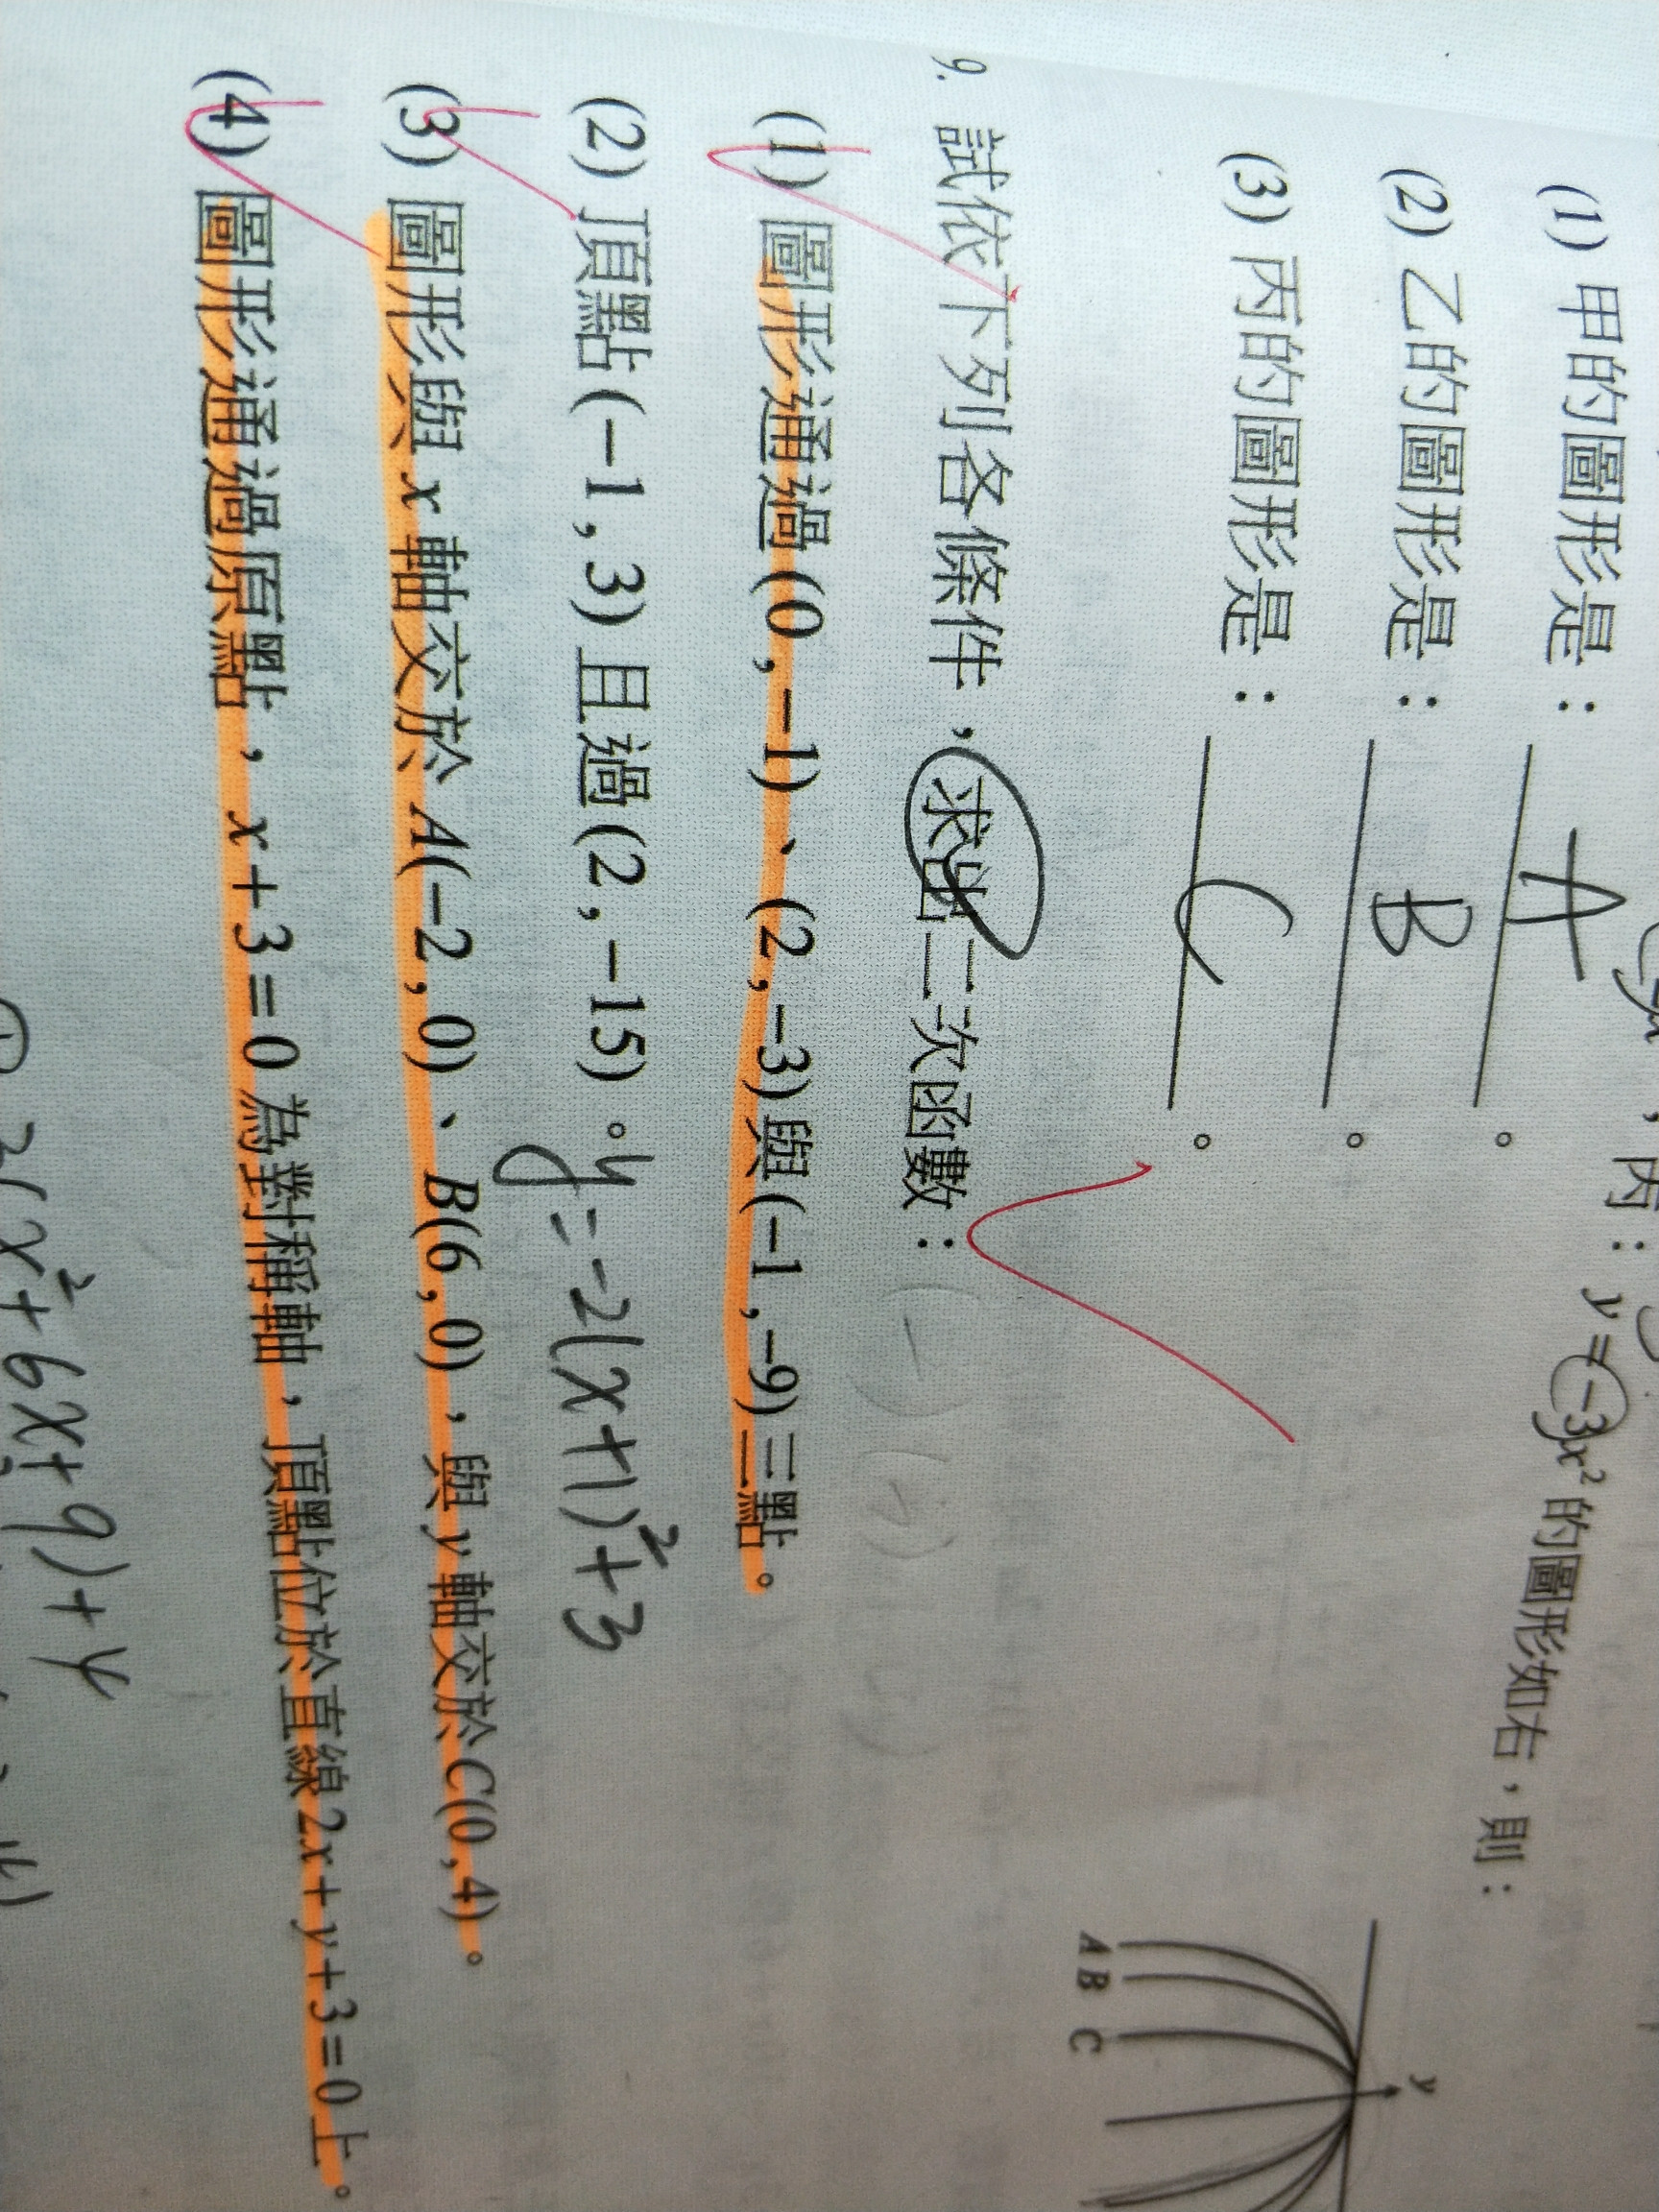 丙：y=-3x² 的圖形如右，則：
(1) 甲的圖形是：A。
(2) 乙的圖形是：B。
(3) 丙的圖形是：C。
y
A B C
9. 試依下列各條件，求出二次函數：
(1) 圖形通過(0,-1)、(2,-3)與(-1,-9)三點。
(2) 頂點(-1,3)且過(2,-15)。y=-2(x+1)²+3
(3) 圖形與x軸交於A(-2,0)、B(6,0)，與y軸交於C(0,4)。
(4) 圖形通過原點，x+3=0為對稱軸，頂點位於直線2x+y+3=0上。
(x²+6x+9)+